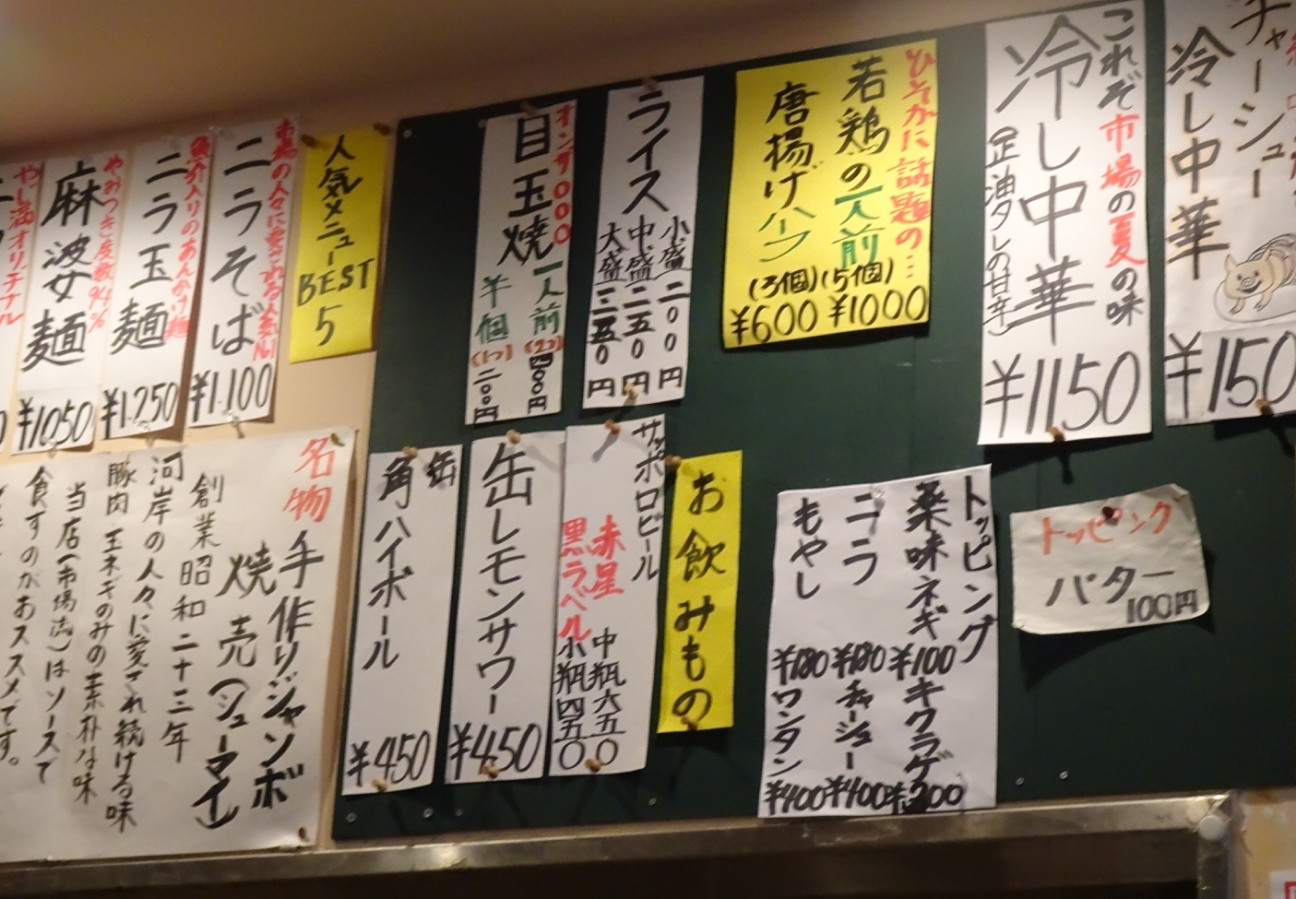 チャーシュー
冷し中華
¥150
これぞ市場の夏の味
冷し中華
(醤油タレの甘辛)
¥1150
ひそかに話題の…
若鶏の一人前
唐揚げハーフ
(3個)(5個)
¥600 ¥1000
ライス
小盛二〇〇円
中盛二五〇円
大盛三五〇円
オンザ〇〇〇
目玉焼
一人前(2コ)
半個(1コ)二〇〇円
人気メニュー
BEST
5
市場の人々に愛される人気№1
ニラそば
¥1.100
魚介入りのあんかけ麺
ニラ玉麺
¥1.250
やみつき度数94%
麻婆麺
¥1050
オリヂナル
トッピング
バター
100円
トッピング
薬味ネギ ¥100
キクラゲ ¥200
ニラ
チャーシュー ¥400
もやし
ワンタン ¥400
お飲みもの
サッポロビール
赤星 中瓶六五〇
黒ラベル 小瓶四五〇
缶レモンサワー
¥450
缶
角ハイボール
¥450
名物 手作りジャンボ
焼売(シューマイ)
創業昭和二十三年
河岸の人々に愛され続ける味
豚肉 玉ネギのみの素朴な味
当店(市場流)はソースで
食すのがおススメです。